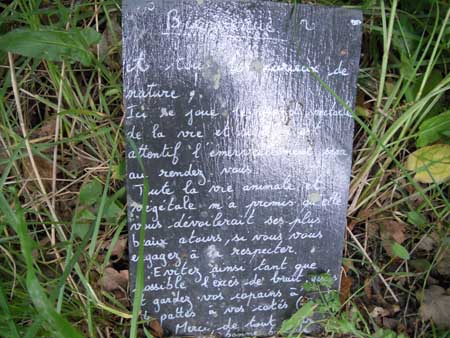 Bienvenue
et à tous curieux de
nature,
Ici se joue le spectacle
de la vie et
attentif l'émerveillement sera
au rendez vous
Toute la vie animale et
végétale m'a promis qu'elle
vous dévoilerait ses plus
beaux atours, si vous vous
engagez à la respecter.
Evitez ainsi tant que
possible l'excès de bruit,
et gardez vos copains à
4 pattes à vos côtés
Merci de tout
bonne